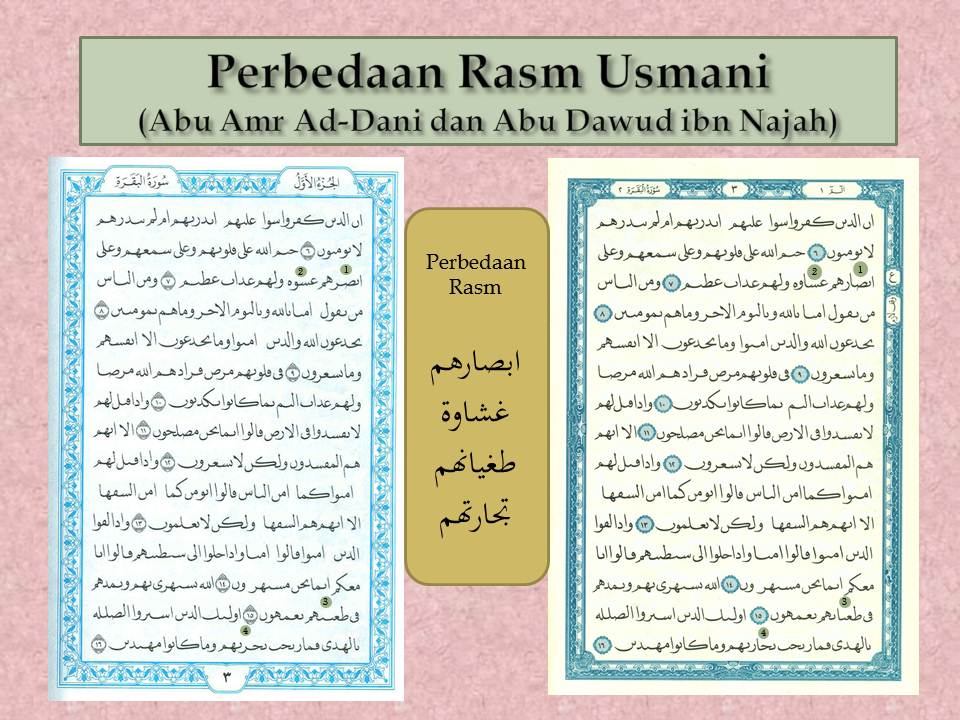 Perbedaan Rasm Usmani
(Abu Amr Ad-Dani dan Abu Dawud ibn Najah)
سورة البقرة الجزء الأول
اں الدىں كڡروا سوا علىهم ءاىدرىهم ام لم ىىدرهم
لا ىومىوں ٦ حىم الله على ٯلوىهم وعلى سمعهم وعلى
1 2
اىصرهم عسوه ولهم عداٮ عطىم ٧ ومں الىاس
مں ىٯول امىا ىالله وىالىوم الاحر وما هم ىمومىىں ٨
ىحدعوں الله والدىں امىوا وما ىحدعوں الا اىڡسهم
وما ىسعروں ٩ ڡى ٯلوىهم مرص ڡرادهم الله مرصا
ولهم عداٮ الىم ىما كاىوا ىكدىوں ١٠ وادا ٯىل لهم
لا ىڡسدوا ڡى الارص ٯالوا اىما ىحں مصلحوں ١١ الا اىهم
هم المڡسدوں ولكں لا ىسعروں ١٢ وادا ٯىل لهم
امىوا كما امں الىاس ٯالوا اىومں كما امں السڡها
الا اىهم هم السڡها ولكں لا ىعلموں ١٣ وادا لٯوا
الدىں امىوا ٯالوا امىا وادا حلوا الى سىطىىهم ٯالوا اىا
معكم اىما ىحں مسىهروں ١٤ الله ىسىهرى ىهم وىمدهم
3
ڡى طعىىهم ىعمهوں ١٥ اولىك الدىں اسىروا الصلله
4
ىالهدى ڡما رىحٮ ىحرىهم وما كاىوا مهىدىں ١٦
٣
Perbedaan
Rasm
ابصارهم
غشاوة
طغيانهم
تجارتهم
سورة البقرة ٢ ٣ الـم ١
اں الدىں كڡروا سوا علىهم ءاىدرىهم ام لم ىىدرهم
لا ىومىوں ٦ حىم الله على ٯلوىهم وعلى سمعهم وعلى
1 2
اىصارهم عساوه ولهم عداٮ عطىم ٧ ومں الىاس
مں ىٯول امىا ىالله وىالىوم الاحر وما هم ىمومىىں ٨
ىحدعوں الله والدىں امىوا وما ىحدعوں الا اىڡسهم
وما ىسعروں ٩ ڡى ٯلوىهم مرص ڡرادهم الله مرصا
ولهم عداٮ الىم ىما كاىوا ىكدىوں ١٠ وادا ٯىل لهم
لا ىڡسدوا ڡى الارص ٯالوا اىما ىحں مصلحوں ١١ الا اىهم
هم المڡسدوں ولكں لا ىسعروں ١٢ وادا ٯىل لهم
امىوا كما امں الىاس ٯالوا اىومں كما امں السڡها
الا اىهم هم السڡها ولكں لا ىعلموں ١٣ وادا لٯوا
الدىں امىوا ٯالوا امىا وادا حلوا الى سىطىىهم ٯالوا اىا
معكم اىما ىحں مسىهروں ١٤ الله ىسىهرى ىهم وىمدهم
3
ڡى طعىاىهم ىعمهوں ١٥ اولىك الدىں اسىروا الصلله
4
ىالهدى ڡما رىحٮ ىحارىهم وما كاىوا مهىدىں ١٦